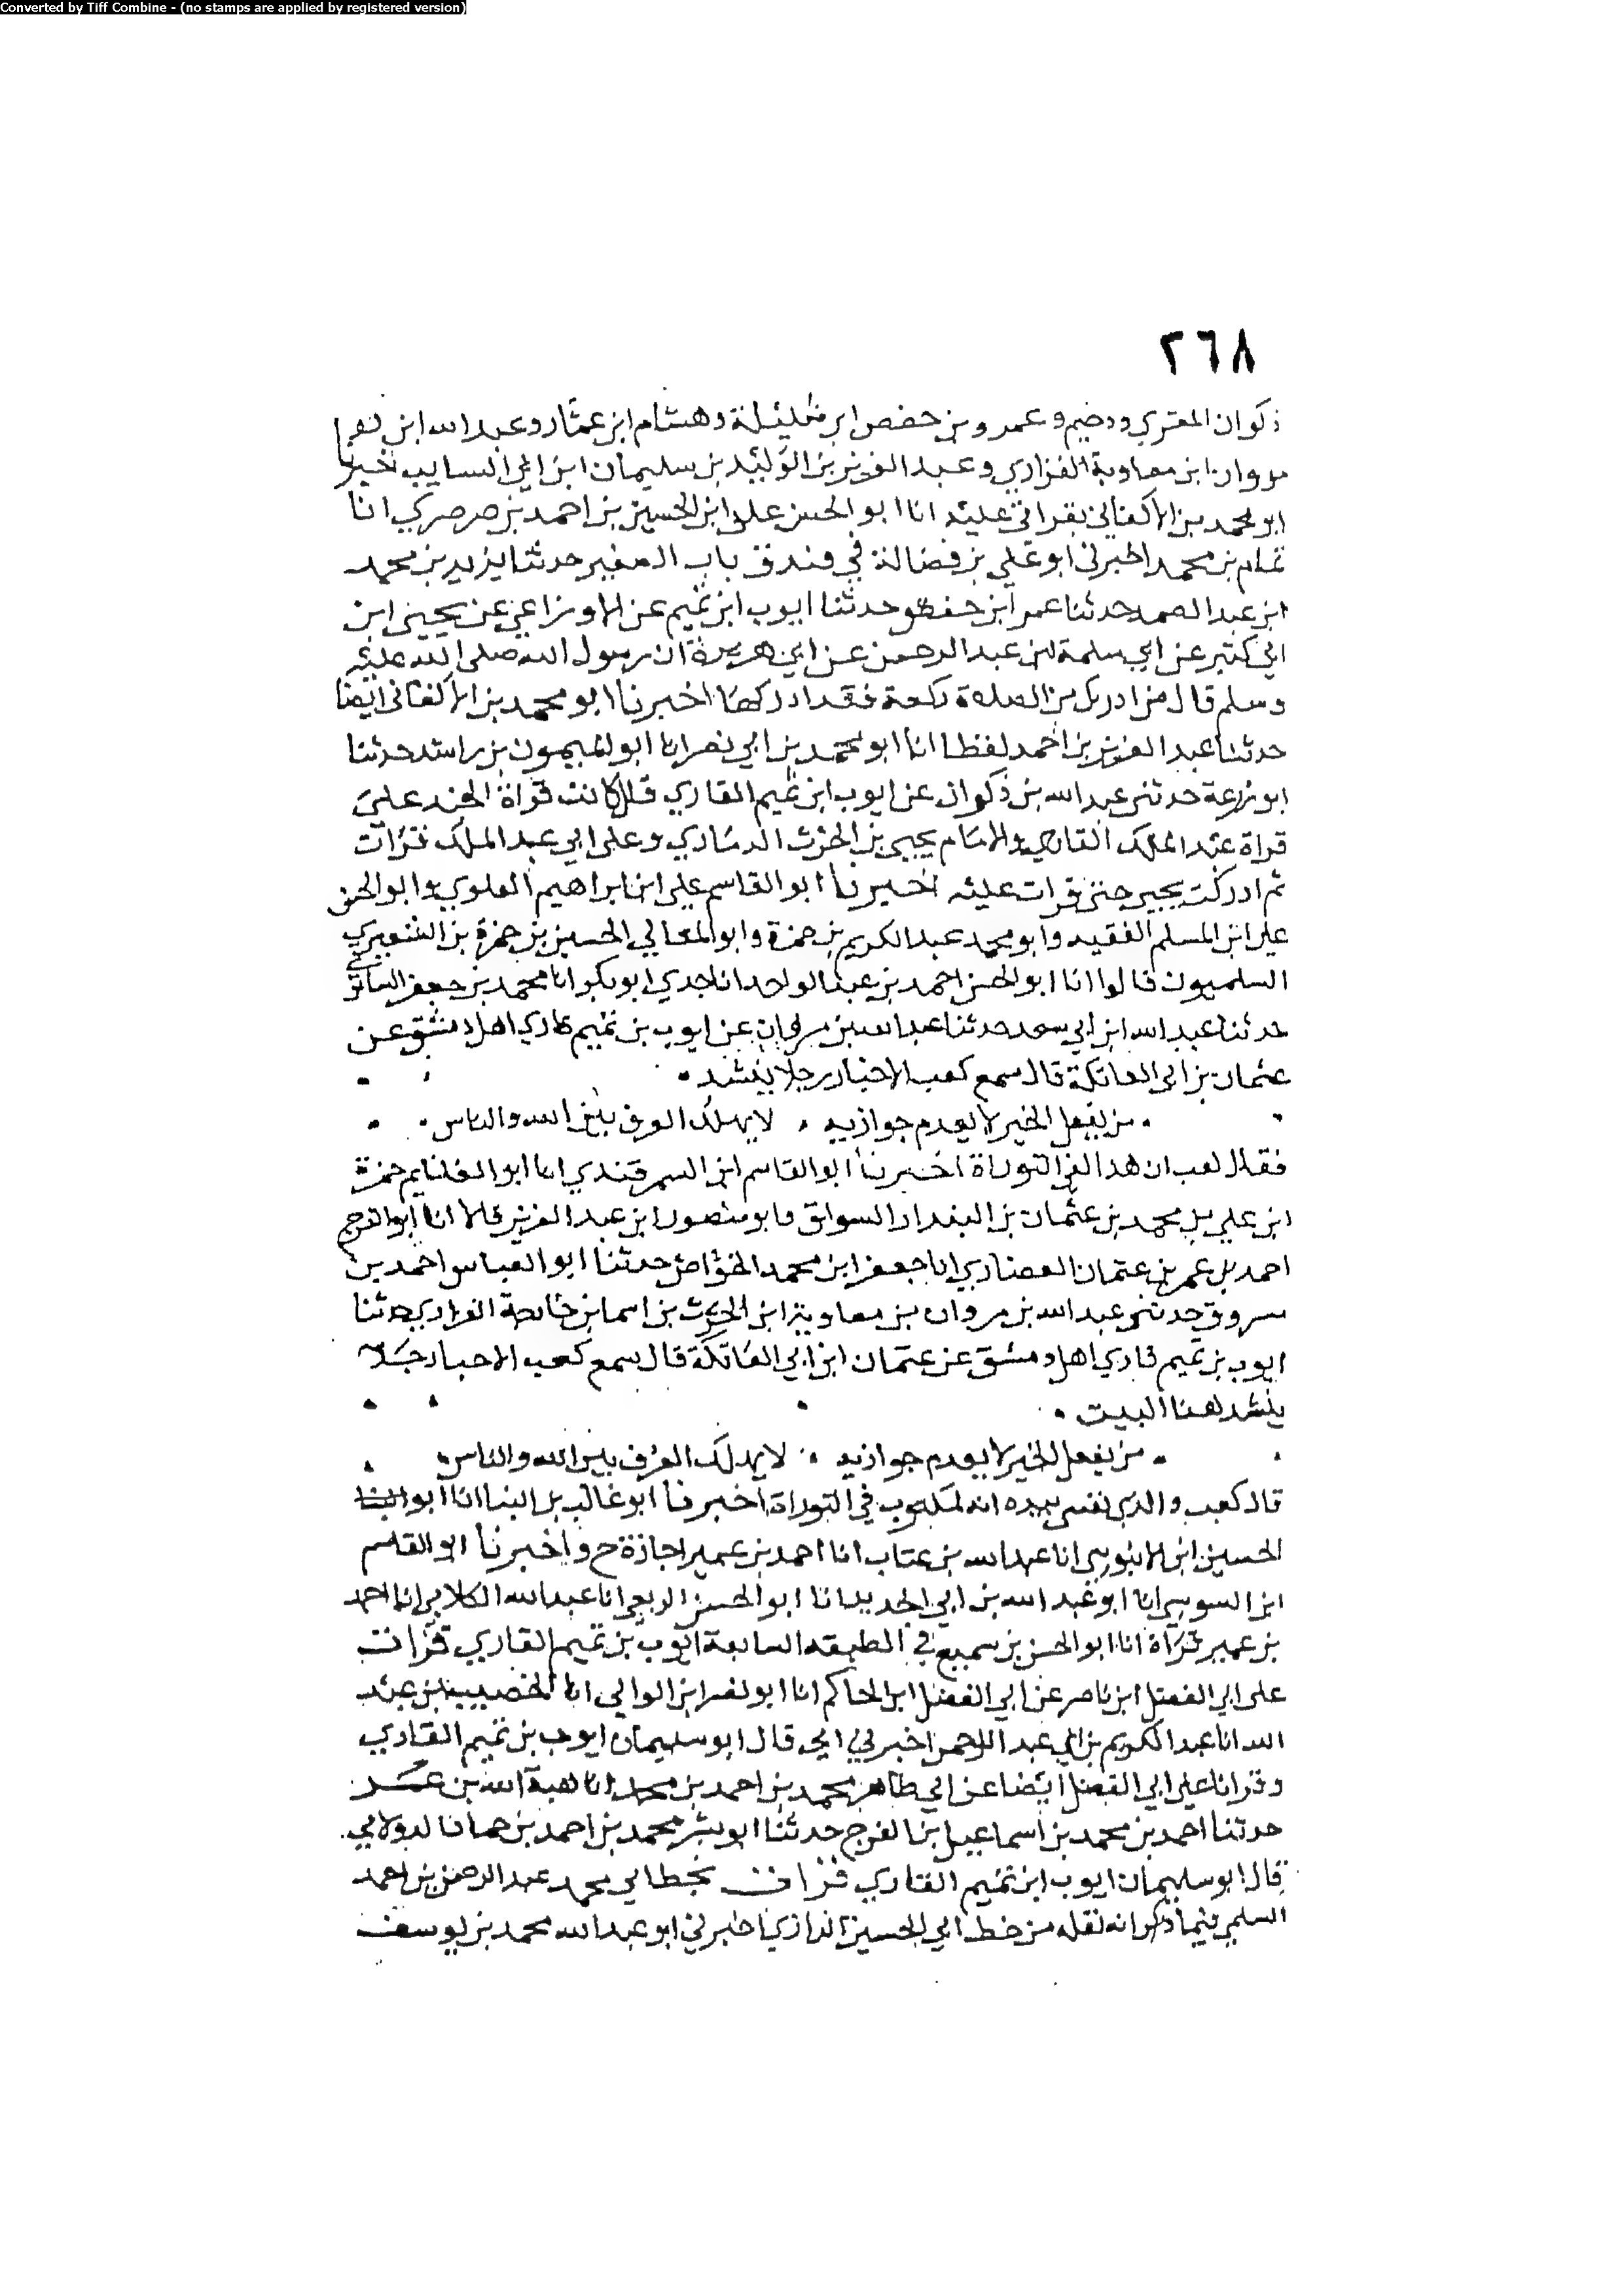 Converted by Tiff Combine - (no stamps are applied by registered version)
٢٦٨
ذكوان المقري ودحيم وعمرو بن حفص ابن شليلة وهشام ابن عمار وعبد الله ابن
مروان ابن معاوية الفزاري وعبد العزيز بن الوليد بن سليمان ابن ابي السايب اخبرنا
ابو محمد بن الاكفاني بقراتي عليه انا ابو الحسن علي ابن الحسين بن احمد بن صرصري انا
تمام بن محمد اخبرني ابو علي بن فضالة في فندق باب الصغير حدثنا يزيد بن محمد
ابن عبد الصمد حدثنا عمر ابن حفص حدثنا ايوب ابن تميم عن الاوزاعي عن يحيى ابن
ابي كثير عن ابي سلمة ابن عبد الرحمن عن ابي هريرة ان رسول الله صلى الله عليه
وسلم قال من ادرك من الصلاة ركعة فقد ادركها اخبرنا ابو محمد بن الاكفاني ايضا
حدثنا عبد العزيز بن احمد لفظا انا ابو محمد بن ابي نصر انا ابو الميمون بن راشد حدثنا
ابو زرعة حدثني عبد الله بن ذكوان عن ايوب ابن تميم القاري قال كانت قراة الجند على
قراة عبد الملك القاري والامام يحيى بن الحرث الدماري وعلى ابي عبد الملك قرات
ثم ادركت يحيى حتى قرات عليه اخبرنا ابو القاسم علي ابن ابراهيم العلوي وابو الحسن
علي ابن المسلم الفقيه وابو محمد عبد الكريم بن حمزة وابو المعالي الحسين بن حمزة بن الشعيري
السلميون قالوا انا ابو الحسن احمد بن عبد الواحد انا جدي ابو بكر انا محمد بن جعفر السامري
حدثنا عبد الله ابن ابي سعد حدثنا عبد الله بن مروان عن ايوب بن تميم قاري اهل دمشق عن
عثمان بن ابي العاتكة قال سمع كعب الاحبار رجلا ينشد
من يفعل الخير لا يعدم جوازيه لا يهلك العرف بين الله والناس
فقال كعب ان هذا لفي التوراة اخبرنا ابو القاسم ابن السمرقندي انا ابو الغنايم حمزة
ابن علي بن محمد بن عثمان بن البندار السواق وابو منصور ابن عبد العزيز قالا انا ابو الفرج
احمد بن عمر بن عثمان الغضاري انا جعفر ابن محمد الخواص حدثنا ابو العباس احمد بن
مسروق حدثني عبد الله بن مروان بن معاوية ابن الحرث بن اسما ابن خارجة الفزاري حدثنا
ايوب بن تميم قاري اهل دمشق عن عثمان ابن ابي العاتكة قال سمع كعب الاحبار رجلا
ينشد هذا البيت
من يفعل الخير لا يعدم جوازيه لا يهلك العرف بين الله والناس
قال كعب والذي نفسي بيده انه لمكتوب في التوراة اخبرنا ابو غالب بن البنا انا ابو
الحسين ابن الابنوسي انا عبد الله بن عتاب انا احمد بن عمير اجازة ح واخبرنا ابو القاسم
ابن السوسي انا ابو عبد الله بن ابي الحديد انا ابو الحسن الربعي انا عبد الله الكلابي انا احمد
بن عمير قراة انا ابو الحسن بن سميع في الطبقه السابعة ايوب بن تميم القاري قرات
على ابي الفضل ابن ناصر عن ابي الفضل ابن الحاكم انا ابو نصر ابن الوايلي انا الخصيب بن عبد
الله انا عبد الكريم بن ابي عبد الرحمن اخبرني ابي قال ابو سليمان ايوب بن تميم القاري
وقرانا على ابي الفضل ايضا عن ابي طاهر محمد بن احمد بن محمد انا هبة الله بن
حدثنا احمد بن محمد بن اسماعيل ابن الفرج حدثنا ابو بشر محمد بن احمد بن حماد الدولابي
قال ابو سليمان ايوب ابن تميم القاري قرات بخط ابي محمد عبد الرحمن بن احمد
السلمي فيما ذكر انه نقله من خط ابي الحسين الرازي اخبرني ابو عبد الله محمد بن يوسف